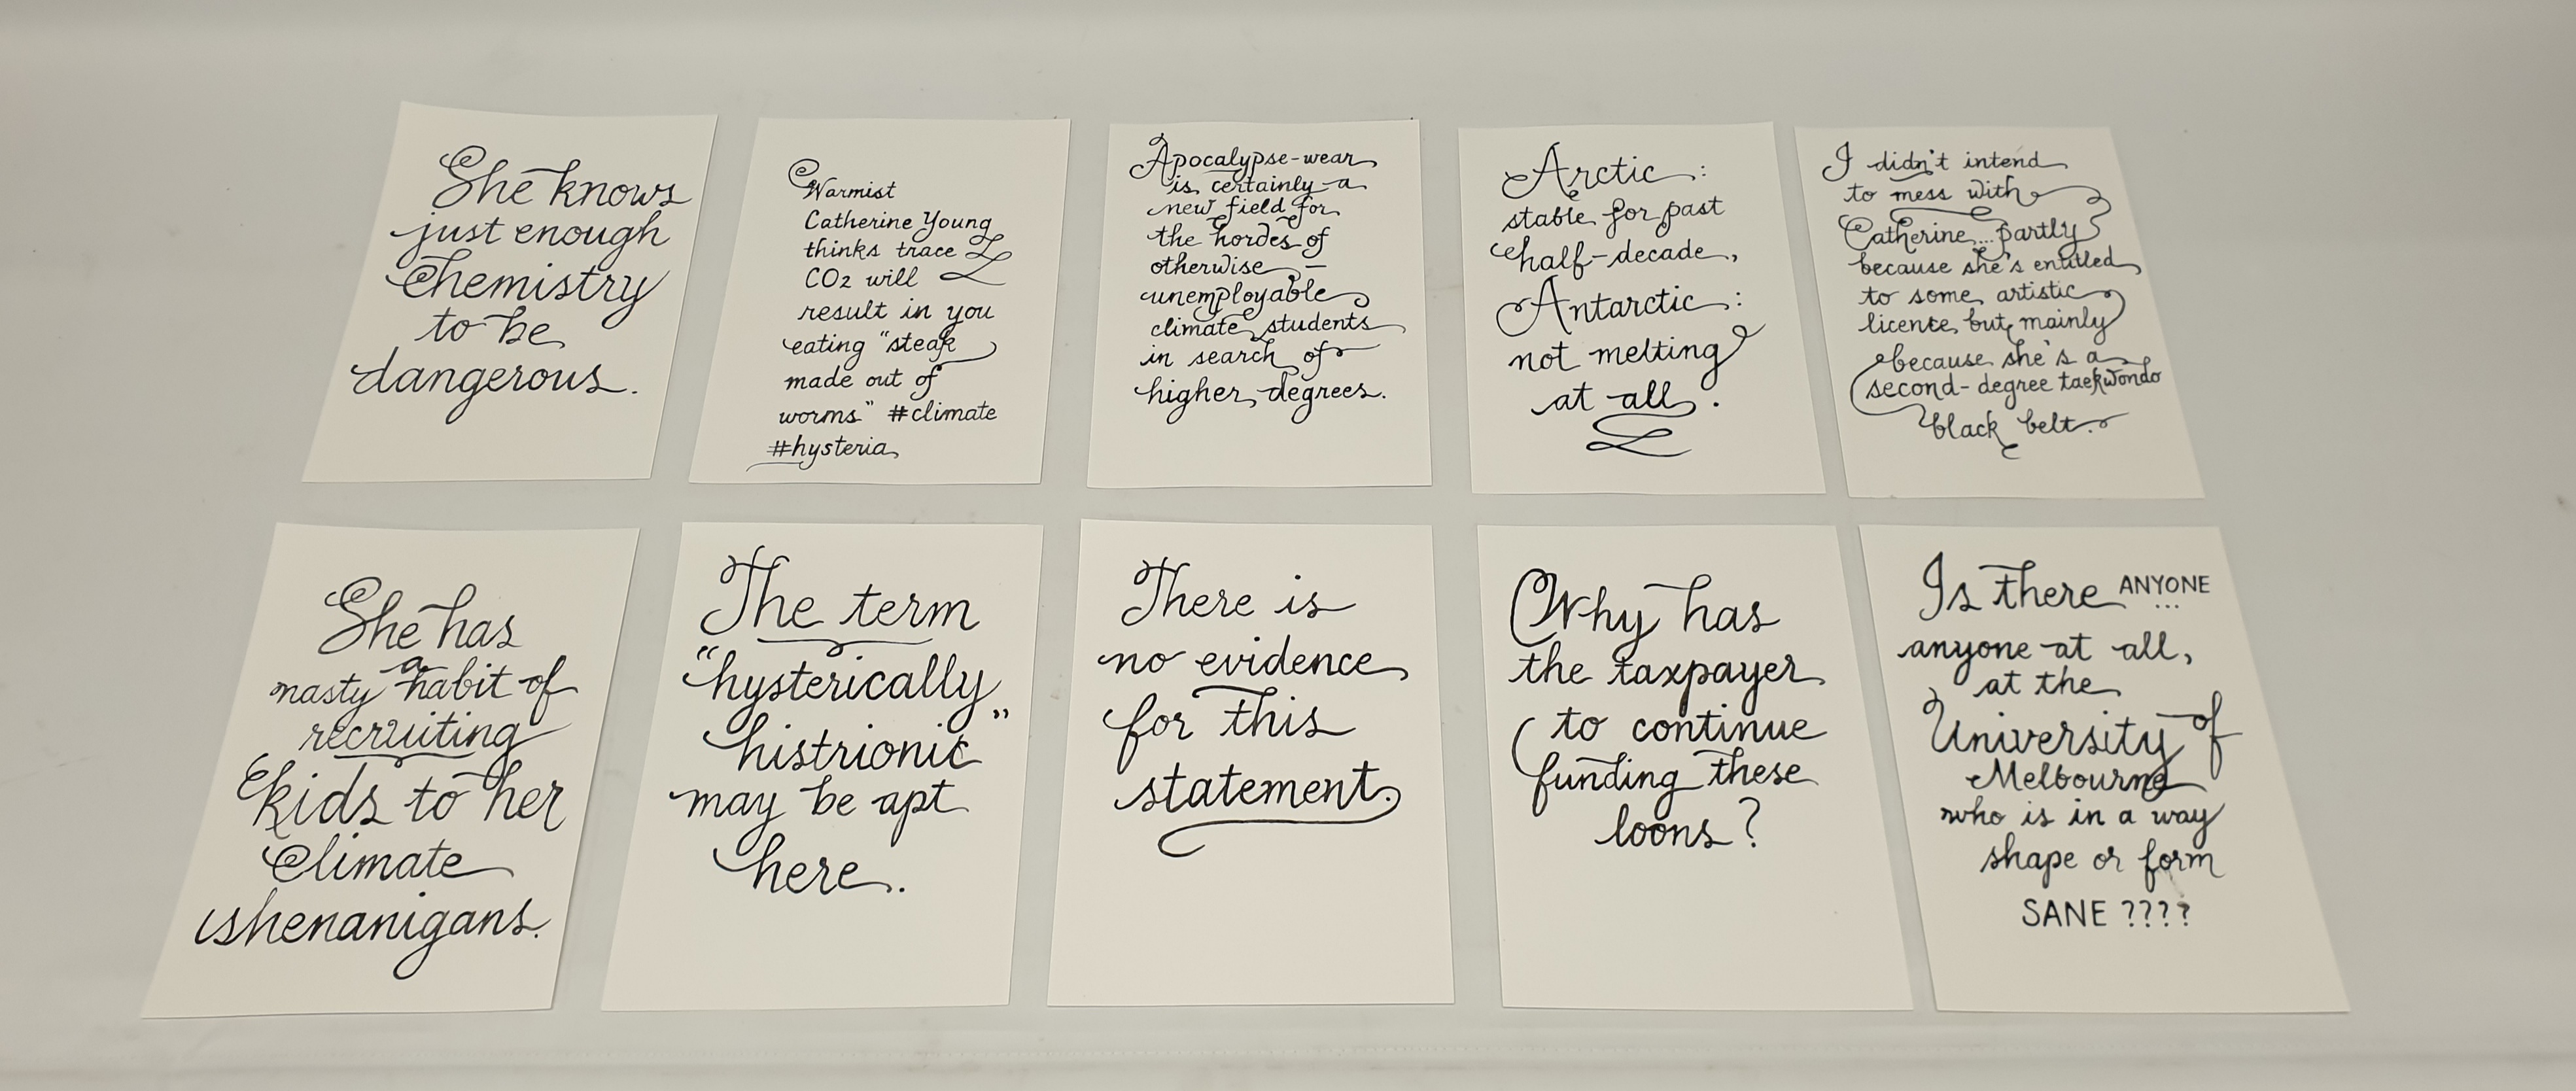 She knows
just enough
Chemistry
to be
dangerous.
Warmist
Catherine Young
thinks trace
CO2 will
result in you
eating "steak
made out of
worms" #climate
#hysteria
Apocalypse-wear
is certainly a
new field for
the hordes of
otherwise -
unemployable
climate students
in search of
higher degrees.
Arctic:
stable for past
half-decade,
Antarctic:
not melting
at all.
I didn't intend
to mess with
Catherine.... partly
because she's entitled
to some artistic
licence, but mainly
because she's a
second-degree taekwondo
black belt.
She has
a
nasty habit of
recruiting
kids to her
Climate
shenanigans.
The term
"hysterically
histrionic"
may be apt
here.
There is
no evidence
for this
statement.
Why has
the taxpayer
to continue
funding these
loons?
Is there ANYONE
...
anyone at all,
at the
University of
Melbourne
who is in a way
shape or form
SANE ????